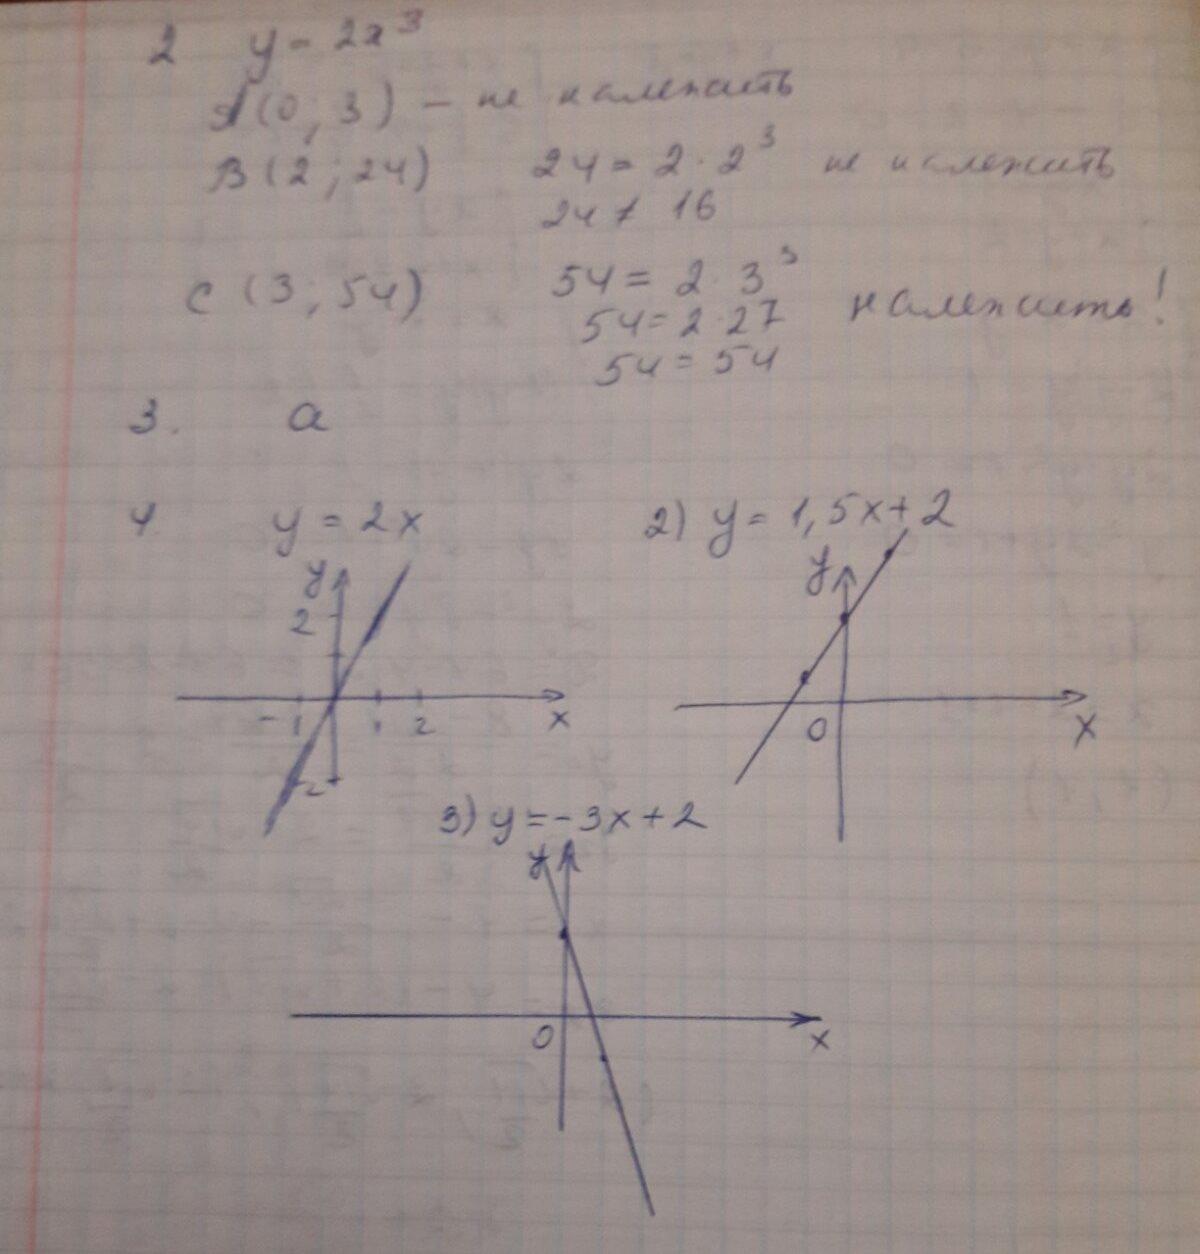 2 y = 2x³
A(0; 3) - не належить
B(2; 24) 24 = 2·2³ не належить
24 ≠ 16
C (3; 54) 54 = 2·3³
54 = 2·27 належить!
54 = 54
3. a
4. y = 2x 2) y = 1,5x+2
y y
2
-1 1 2 x 0 x
-2
3) y = -3x+2
y
0 x